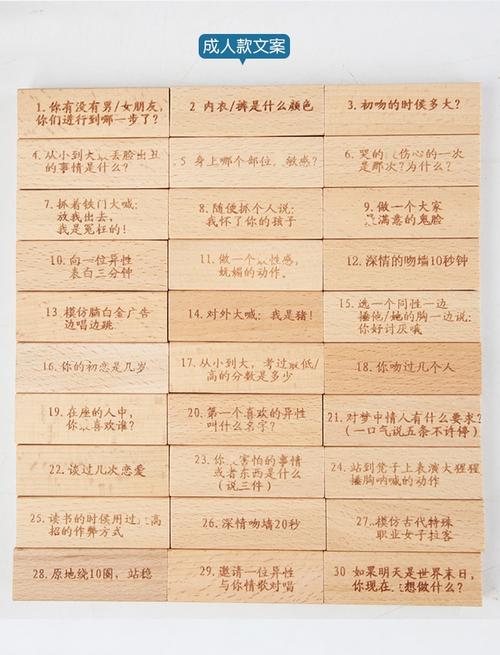 成人款文案
1. 你有没有男/女朋友,
你们进行到哪一步了?
2 内衣/裤是什么颜色
3. 初吻的时侯多大?
4. 从小到大 丢脸出丑
的事情是什么?
5 身上哪个部位, 敏感?
6. 哭的 伤心的一次
是那次?为什么?
7. 抓着铁门大喊:
放我出去,
我是冤枉的!
8. 随便抓个人说:
我怀了你的孩子
9. 做一个大家
满意的鬼脸
10. 向一位异性
表白三分钟
11. 做一个 性感,
妩媚的动作.
12. 深情的吻墙10秒钟
13 模仿脑白金广告
边唱边跳
14. 对外大喊:我是猪!
15. 选一个同性一边
捶他/她的胸一边说:
你好讨厌哦
16. 你的初恋是几岁
17. 从小到大, 考过 低/
高的分数是多少
18. 你吻过几个人
19. 在座的人中,
你 喜欢谁?
20. 第一个喜欢的异性
叫什么名字?
21. 对梦中情人有什么要求?
(一口气说五条不许停)
22. 谈过几次恋爱
23. 你 害怕的事情
或者东西是什么
(说三件)
24. 站到凳子上表演大猩猩
捶胸呐喊的动作
25. 读书的时侯用过 高
招的作弊方式
26. 深情吻墙20秒
27. 模仿古代特殊
职业女子拉客
28. 原地绕10圈, 站稳
29. 邀请一位异性
与你情歌对唱
30 如果明天是世界末日,
你现在 想做什么?